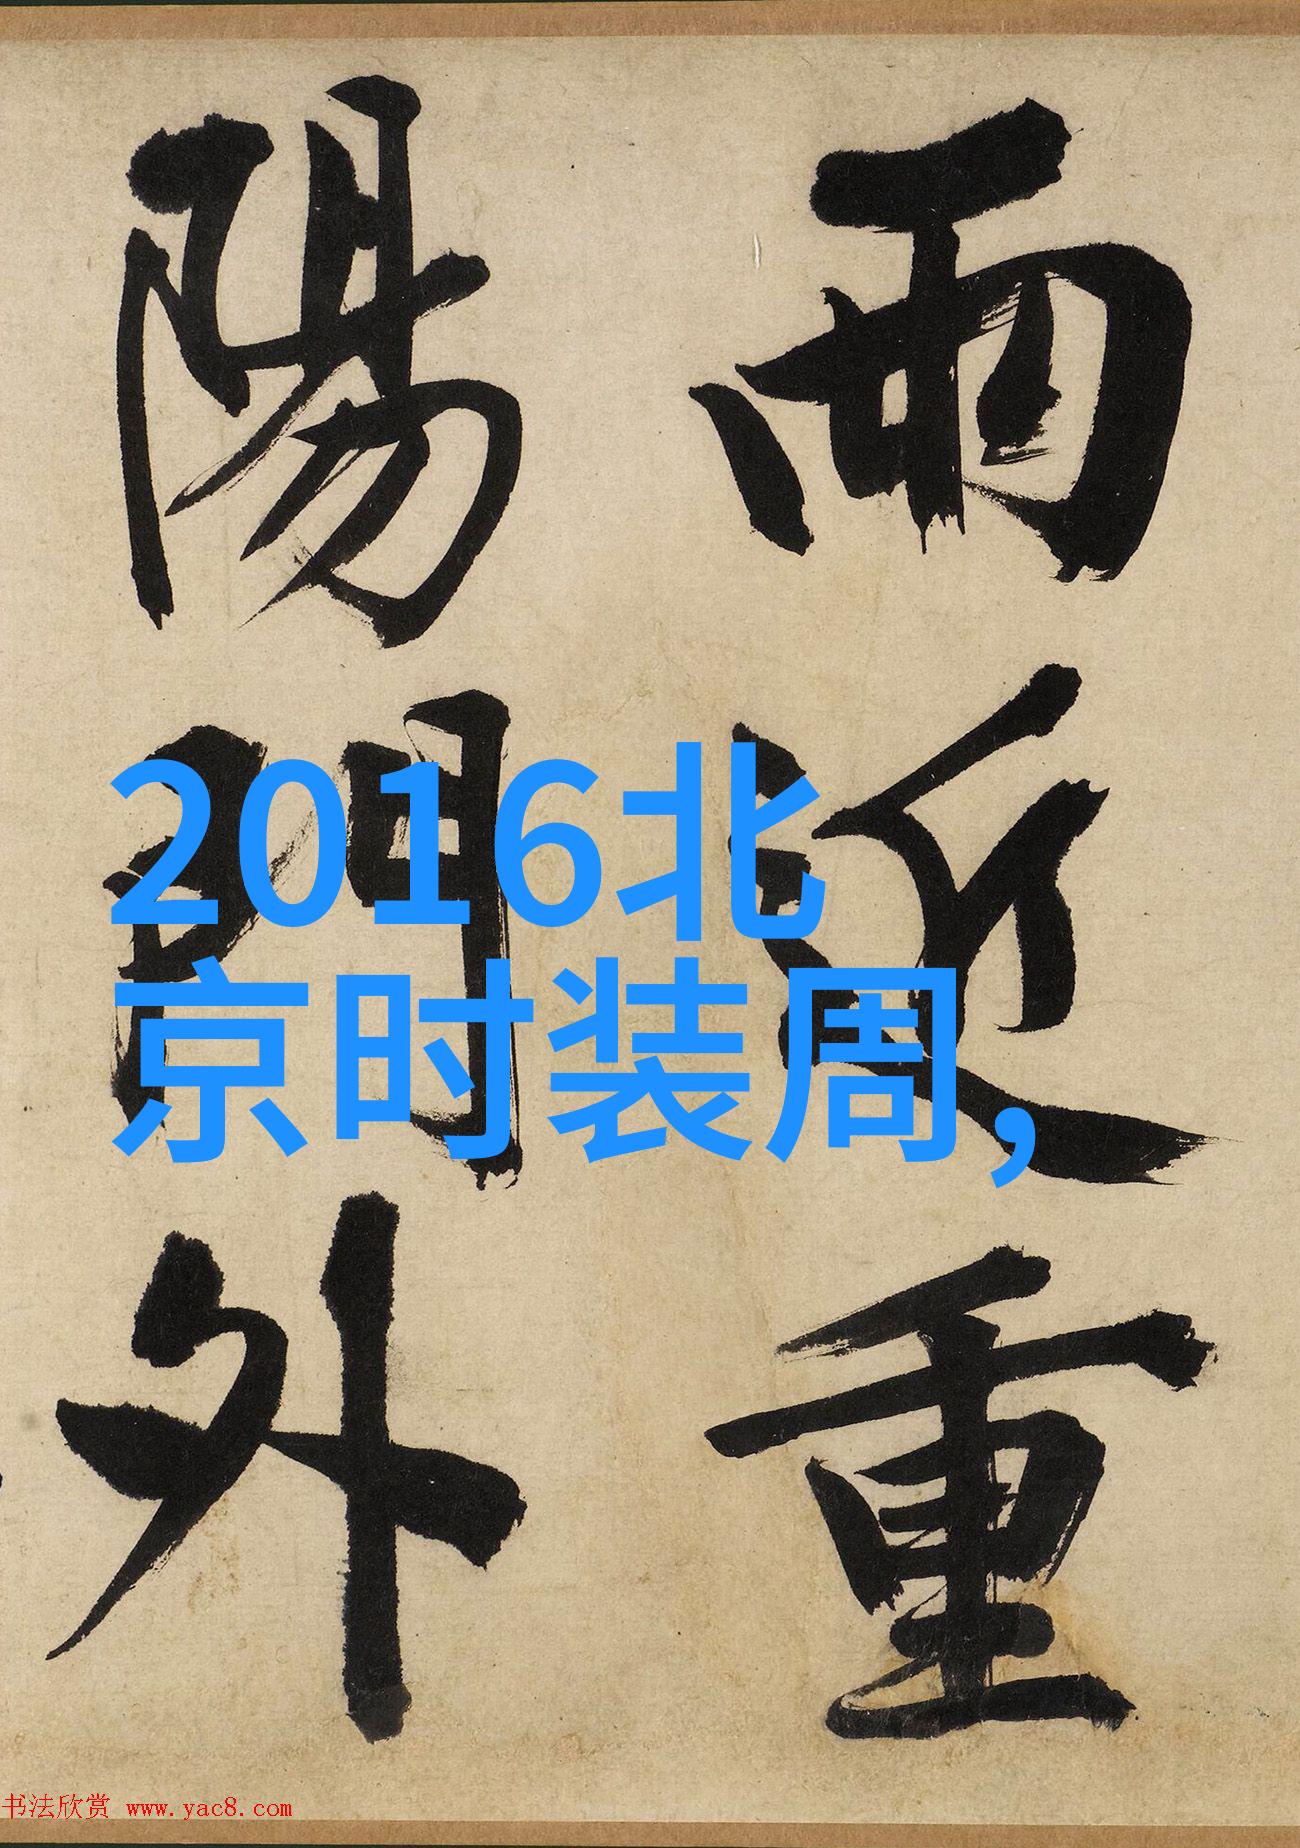 雨近重
陽門外
2016北
京时装周,
书法欣赏 www.yac8.com